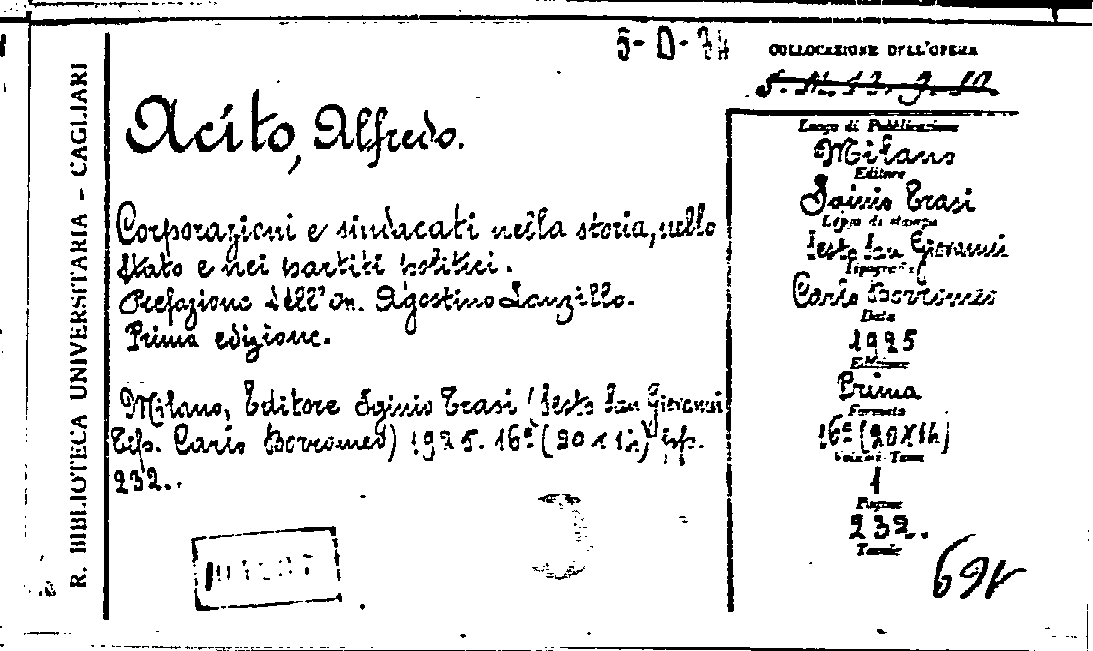 R. BIBLIOTECA UNIVERSITARIA - CAGLIARI
5-D-74
COLLOCAZIONE DELL'OPERA
Acito, Alfredo.
Corporazioni e sindacati nella storia, nello
Stato e nei partiti politici.
Prefazione dell'On. Agostino Lanzillo.
Prima edizione.
Milano, Editore Iginio Trasi (Sesto San Giovanni
Tip. Carlo Borromeo) 1925. 16° (20 x 14) pp.
232.
Luogo di Pubblicazione
Milano
Editore
Iginio Trasi
Luogo di stampa
Sesto San Giovanni
Tipografia
Carlo Borromeo
Data
1925
Edizione
Prima
Formato
16° (20x14)
Volumi-Tomi
1
Pagine
232.
Tavole